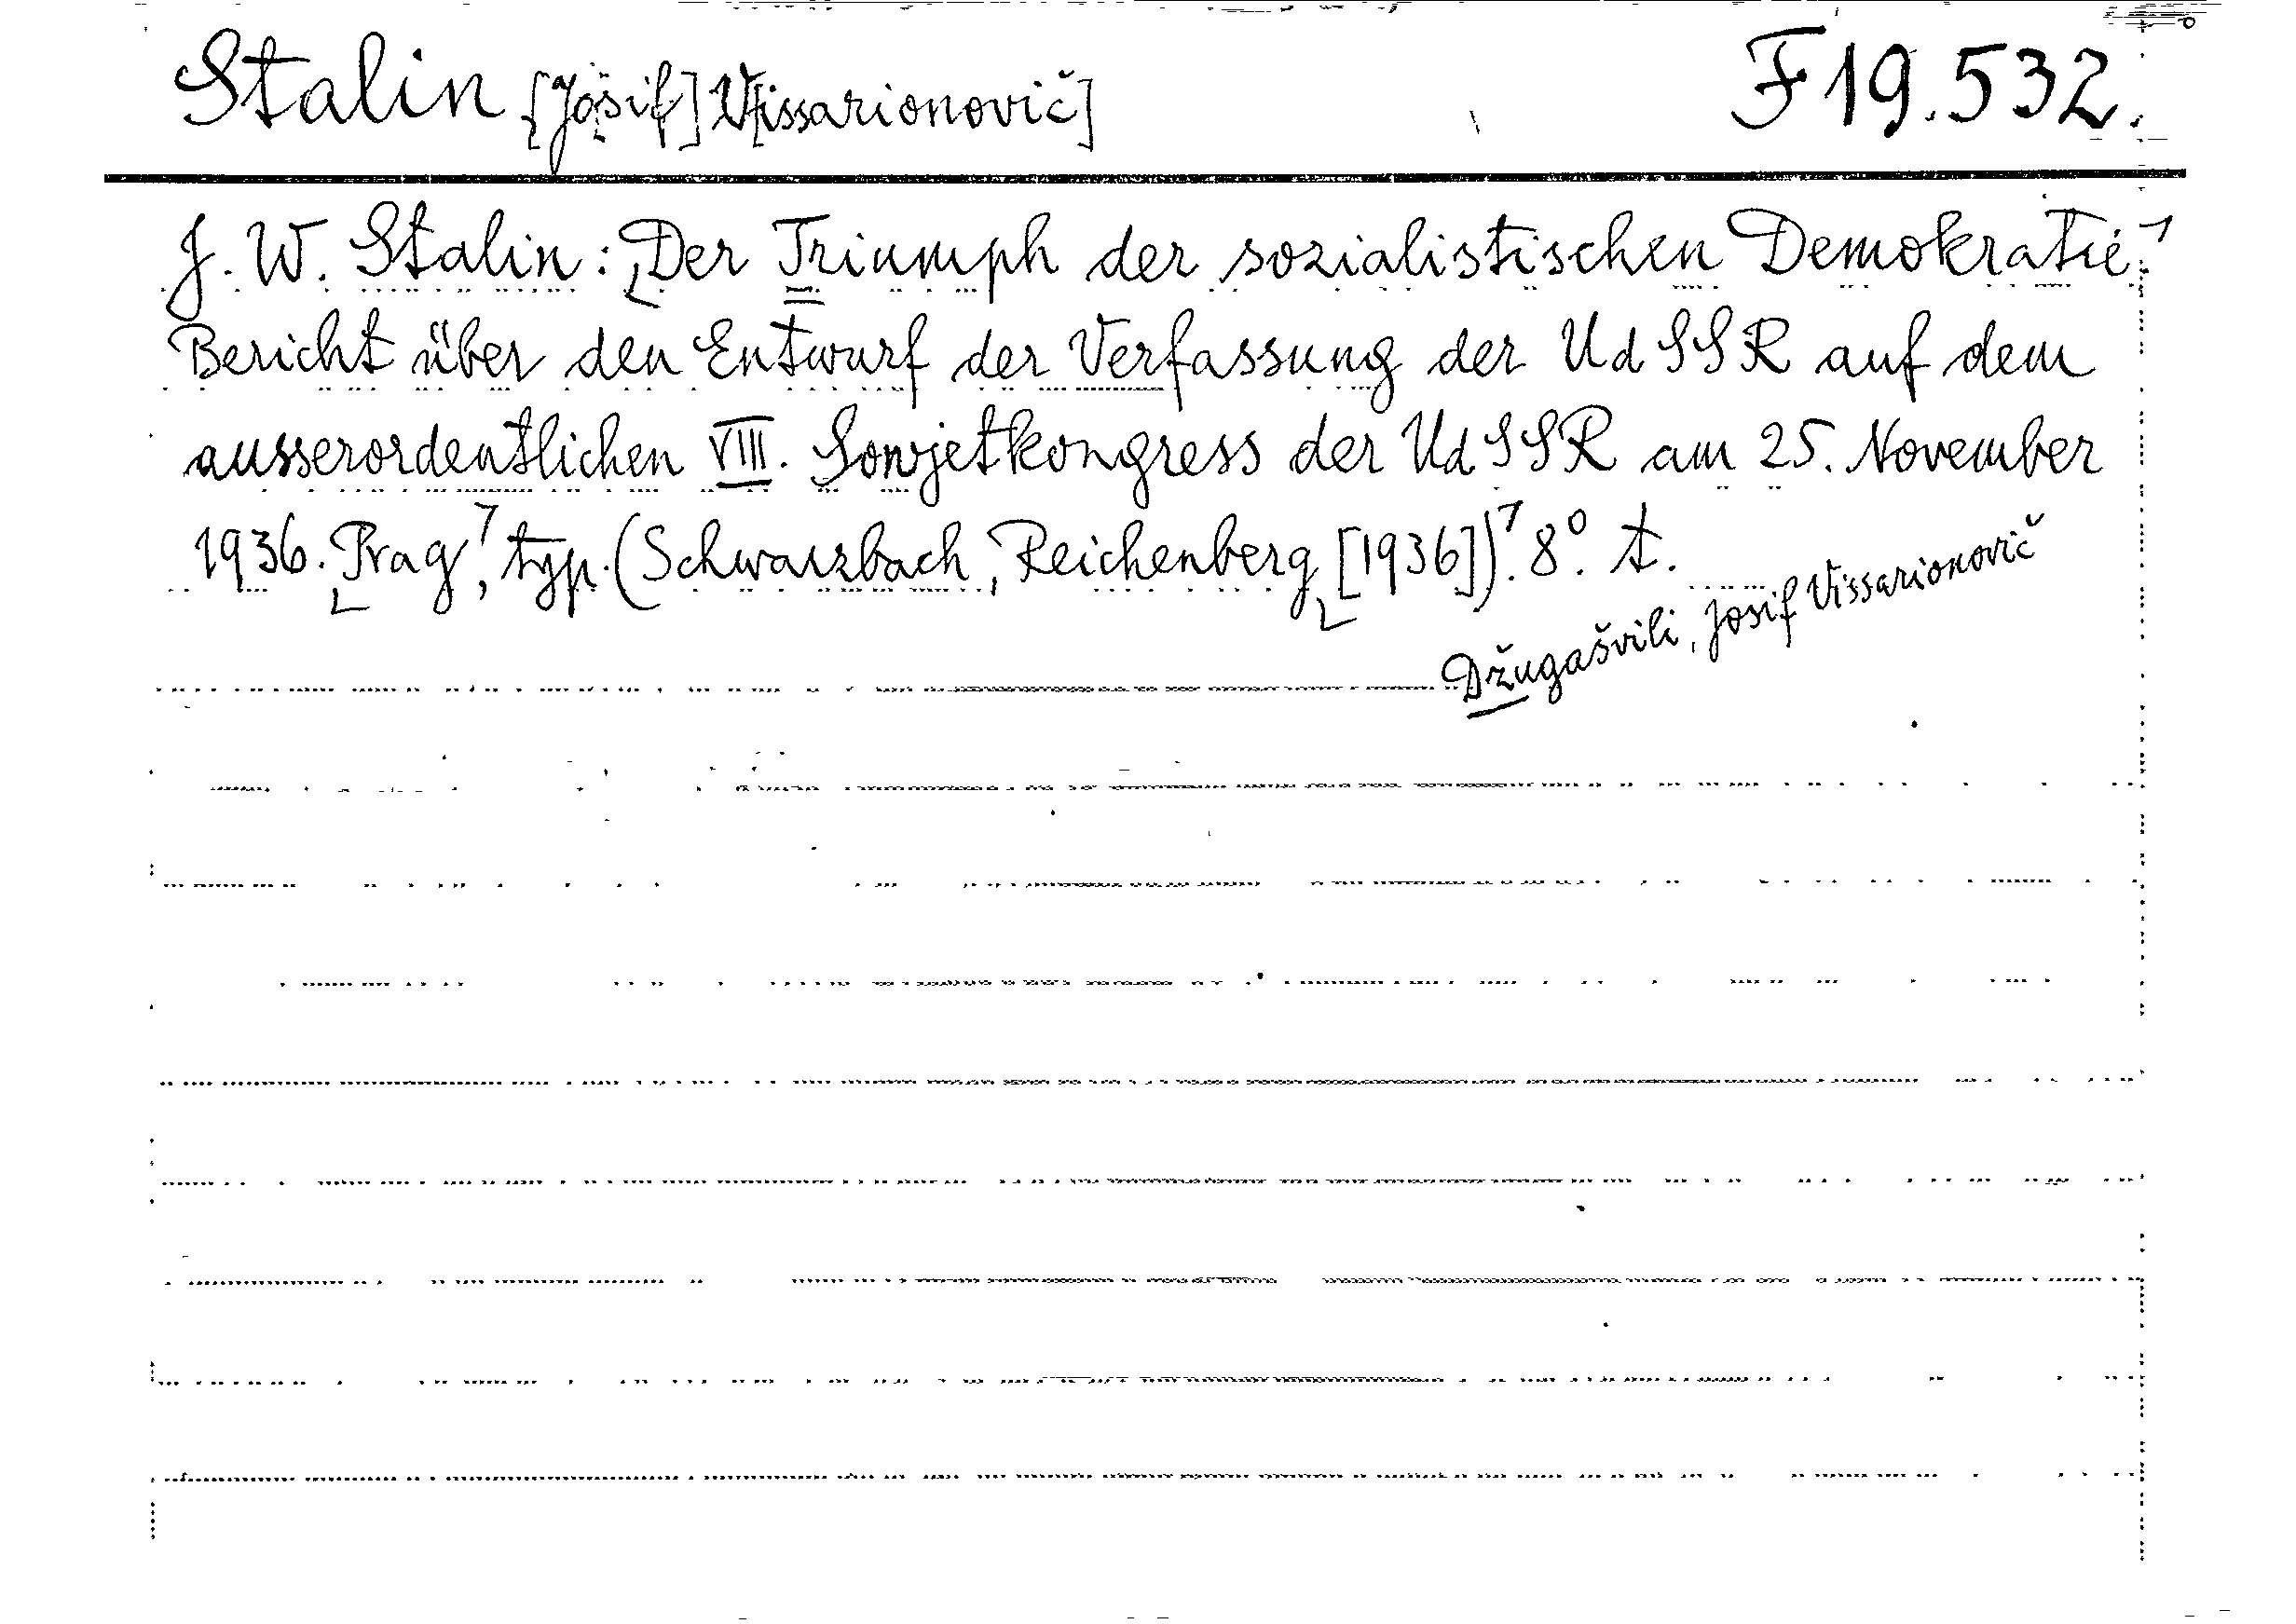 Stalin [Josif] V[issarionovič]
F 19.532.
J. W. Stalin: Der Triumph der sozialistischen Demokratie.
Bericht über den Entwurf der Verfassung der UdSSR auf dem
ausserordentlichen VIII. Sowjetkongress der UdSSR am 25. November
1936. Prag, typ. (Schwarzbach, Reichenberg [1936]). 8°. t.
Džugašvili, Josif Vissarionovič